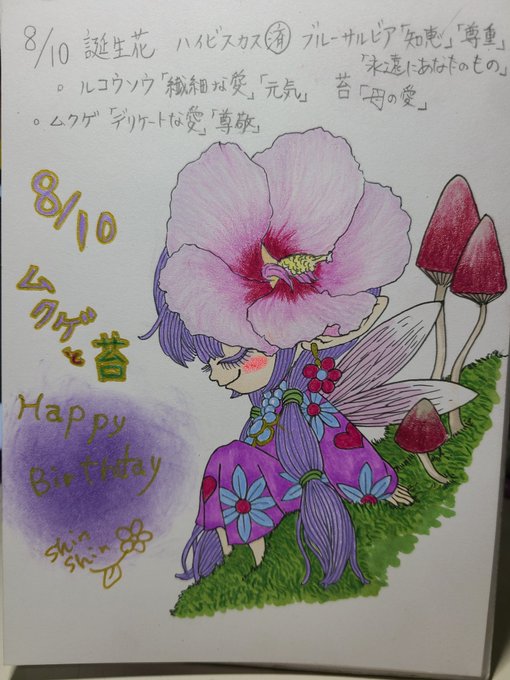 8/10 誕生花 ハイビスカス㊡ ブルーサルビア「知恵」「尊重」
「永遠にあなたのもの」
○ ルコウソウ「繊細な愛」「元気」 苔「母の愛」
○ ムクゲ「デリケートな愛」「尊敬」
8/10
ムクゲと苔
Happy
Birthday
shin
shin